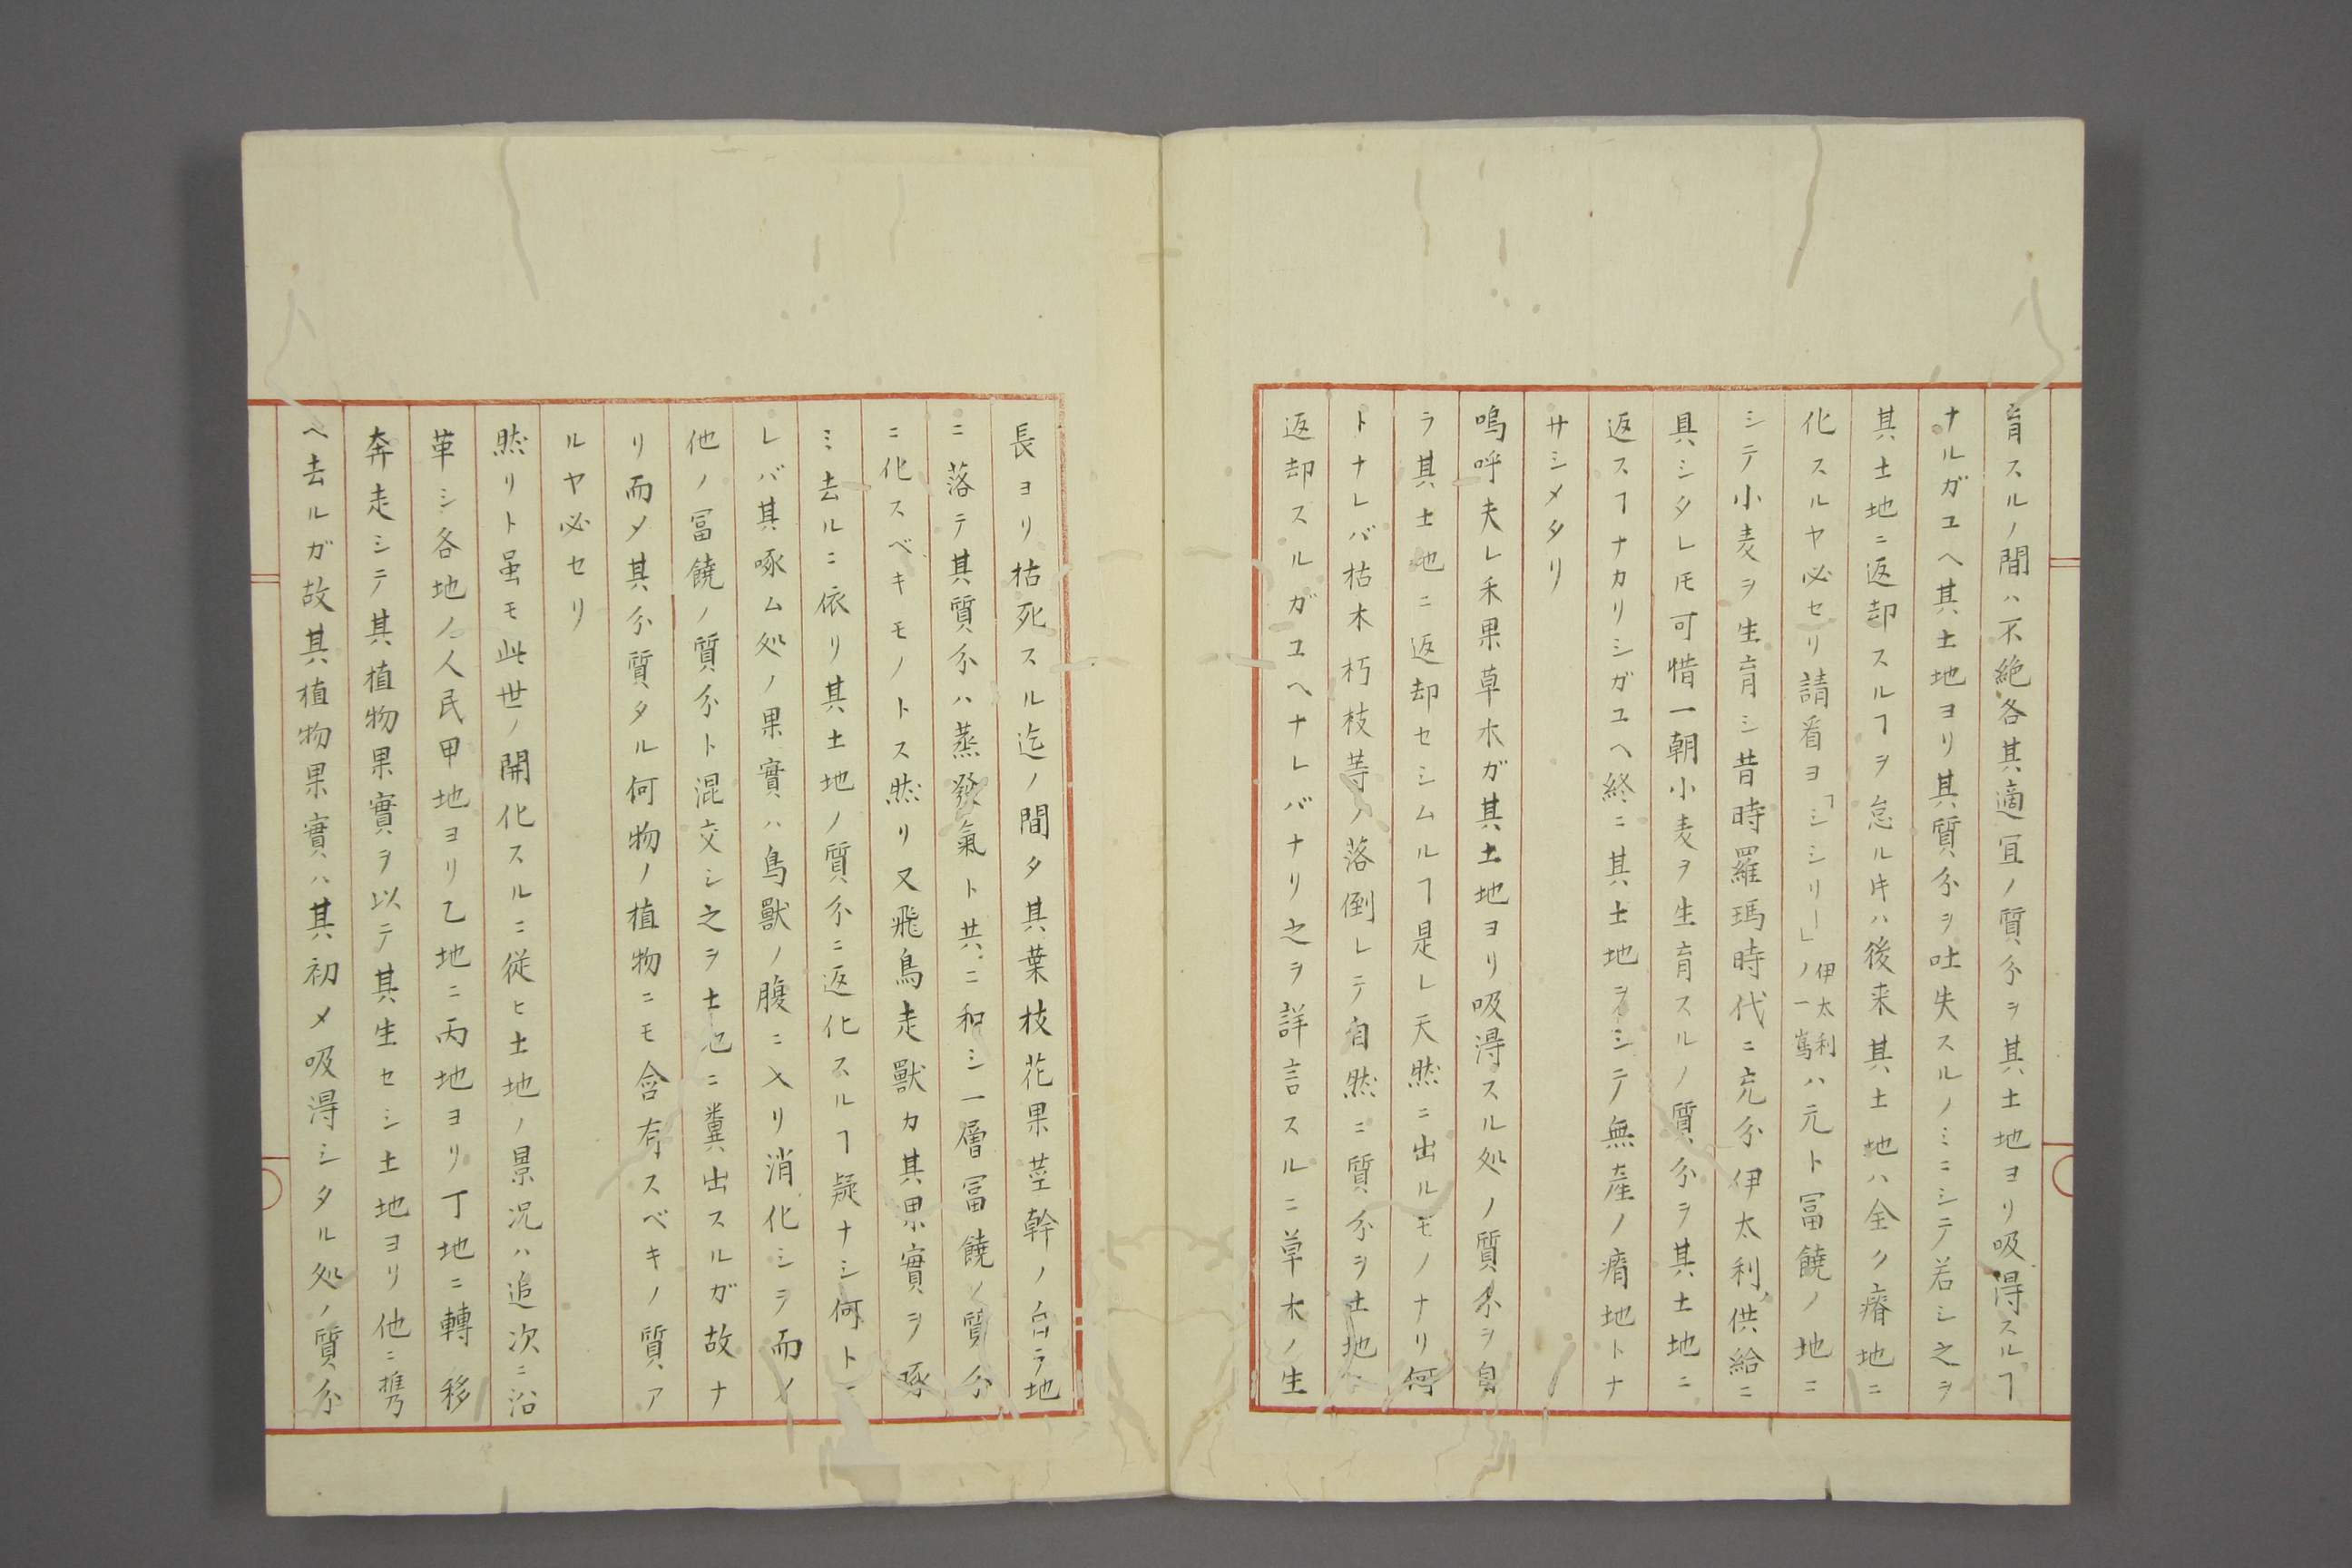 育スルノ間ハ不絶各其適宜ノ質分ヲ其土地ヨリ吸得スルヿ
ナルガユヘ其土地ヨリ其質分ヲ吐失スルノミニシテ若シ之ヲ
其土地ニ返却スルヿヲ怠ル𪜈ハ後来其土地ハ全ク瘠地ニ
化スルヤ必セリ請看ヨ「シシリー」ノ伊太利一嶌ハ元ト冨饒ノ地ニ
シテ小麦ヲ生育シ昔時羅瑪時代ニ充分伊太利ノ供給ニ
具シタレ𪜈可惜一朝小麦ヲ生育スルノ質分ヲ其土地ニ
返スヿナカリシガユヘ終ニ其土地ヲシテ無産ノ瘠地トナ
サシメタリ
嗚呼夫レ禾果草木ガ其土地ヨリ吸得スル処ノ質分ヲ自
ラ其土地ニ返却セシムルヿ是レ天然ニ出ルモノナリ何
トナレバ枯木朽枝等ノ落倒レテ自然ニ質分ヲ土地ニ
返却スルガユヘナレバナリ之ヲ詳言スルニ草木ノ生
長ヨリ枯死スル迄ノ間タ其葉枝花果莖幹ノ自ラ地
ニ落テ其質分ハ蒸發氣ト共ニ和シ一層冨饒ノ質分
ニ化スベキモノトス然リ又飛鳥走獸カ其果實ヲ啄
ミ去ルニ依リ其土地ノ質分ニ返化スルヿ疑ナシ何トナ
レバ其啄ム処ノ果實ハ鳥獸ノ腹ニ入リ消化シラ而メ
他ノ冨饒ノ質分ト混交シ之ヲ土地ニ糞出スルガ故ナ
リ而メ其分質タル何物ノ植物ニモ含有スベキノ質ア
ルヤ必セリ
然リト虽モ此世ノ開化スルニ従ヒ土地ノ景况ハ追次ニ沿
革シ各地ノ人民甲地ヨリ乙地ニ丙地ヨリ丁地ニ轉移
奔走シテ其植物果實ヲ以テ其生セシ土地ヨリ他ニ携
ヘ去ルガ故其植物果實ハ其初メ吸得シタル処ノ質分